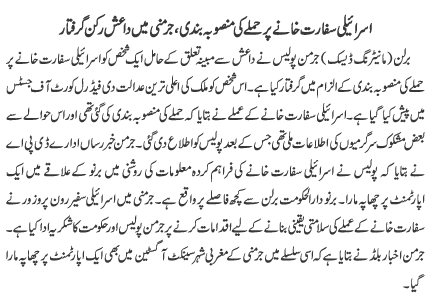 اسرائیلی سفارت خانے پر حملے کی منصوبہ بندی، جرمنی میں داعش رکن گرفتار
برلن (مانیٹرنگ ڈیسک) جرمن پولیس نے داعش سے مبینہ تعلق کے حامل ایک شخص کو اسرائیلی سفارت خانے پر
حملے کی منصوبہ بندی کے الزام میں گرفتار کیا ہے۔ اس شخص کو ملک کی اعلیٰ ترین عدالت دی فیڈرل کورٹ آف جسٹس
میں پیش کیا گیا ہے۔ اسرائیلی سفارت خانے کے عملے نے بتایا کہ حملے کی منصوبہ بندی کی گئی تھی اور اس حوالے سے
بعض مشکوک سرگرمیوں کی اطلاعات ملی تھی جس کے بعد پولیس کو اطلاع دی گئی۔ جرمن خبر رساں ادارے ڈی پی اے
نے بتایا کہ پولیس نے اسرائیلی سفارت خانے کی فراہم کردہ معلومات کی روشنی میں برنو کے علاقے میں ایک
اپارٹمنٹ پر چھاپہ مارا۔ برنو دارالحکومت برلن سے کچھ فاصلے پر واقع ہے۔ جرمنی میں اسرائیلی سفیر رون پروزور نے
سفارت خانے کے عملے کی سلامتی یقینی بنانے کے لیے اقدامات کرنے پر جرمن پولیس اور حکومت کا شکریہ ادا کیا ہے۔
جرمن اخبار بلڈ نے بتایا ہے کہ اسی سلسلے میں جرمنی کے مغربی شہر سینکٹ آگسٹین میں بھی ایک اپارٹمنٹ پر چھاپہ مارا
گیا۔